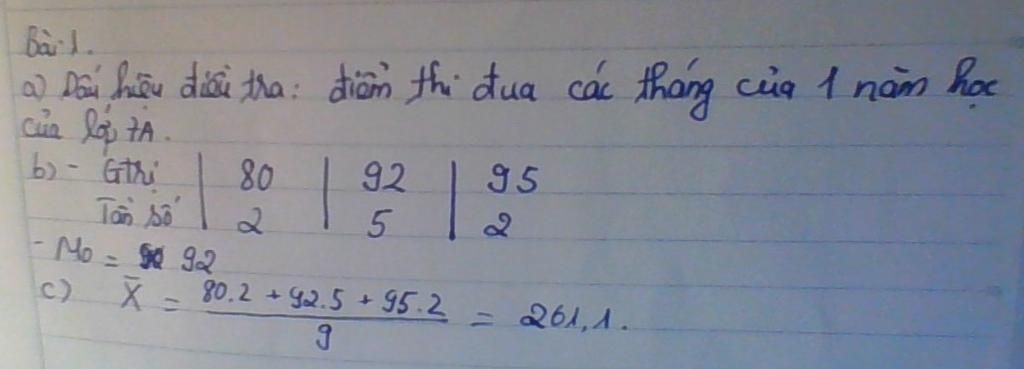 Bài 1.
a) Dấu hiệu điều tra: điểm thi đua các tháng của 1 năm học
của lớp 7A.
b) - Gtrị | 80 | 92 | 95
Tần số | 2 | 5 | 2
- Mo = 92
c) X̄ = (80.2 + 92.5 + 95.2) / 9 = 261,1.